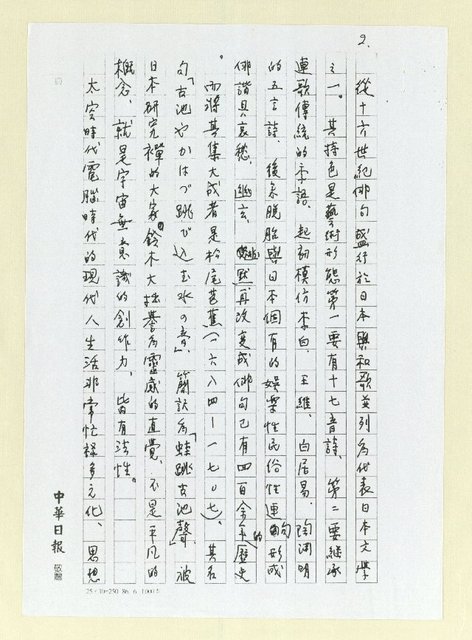 2.
從十六世紀俳句盛行於日本與和歌並列為代表日本文學
之一。其特色是藝術形態第一要有十七音詩、第二要繼承
連歌傳統的季語。起初模仿李白、王維、白居易、陶淵明
的五言詩、後來脫胎與日本個有的娛樂性民俗性連句形成
俳諧具哀愁、幽玄、幽默再次變成俳句已有四百余年的歷史
。而將其集大成者是松尾芭蕉(一六八四—一七〇七)。其名
句「古池やかはづ跳び込む水の音」、簡訳為「蛙跳古池聲」被
日本研究禪的大家鈴木大拙譽為靈感的直覺、不是平凡的
概念、就是宇宙無意識的創作力、皆有法性。
太空時代電腦時代的現代人生活非常忙碌多元化、思想
中華日報
25×10=250 86. 6. 100本